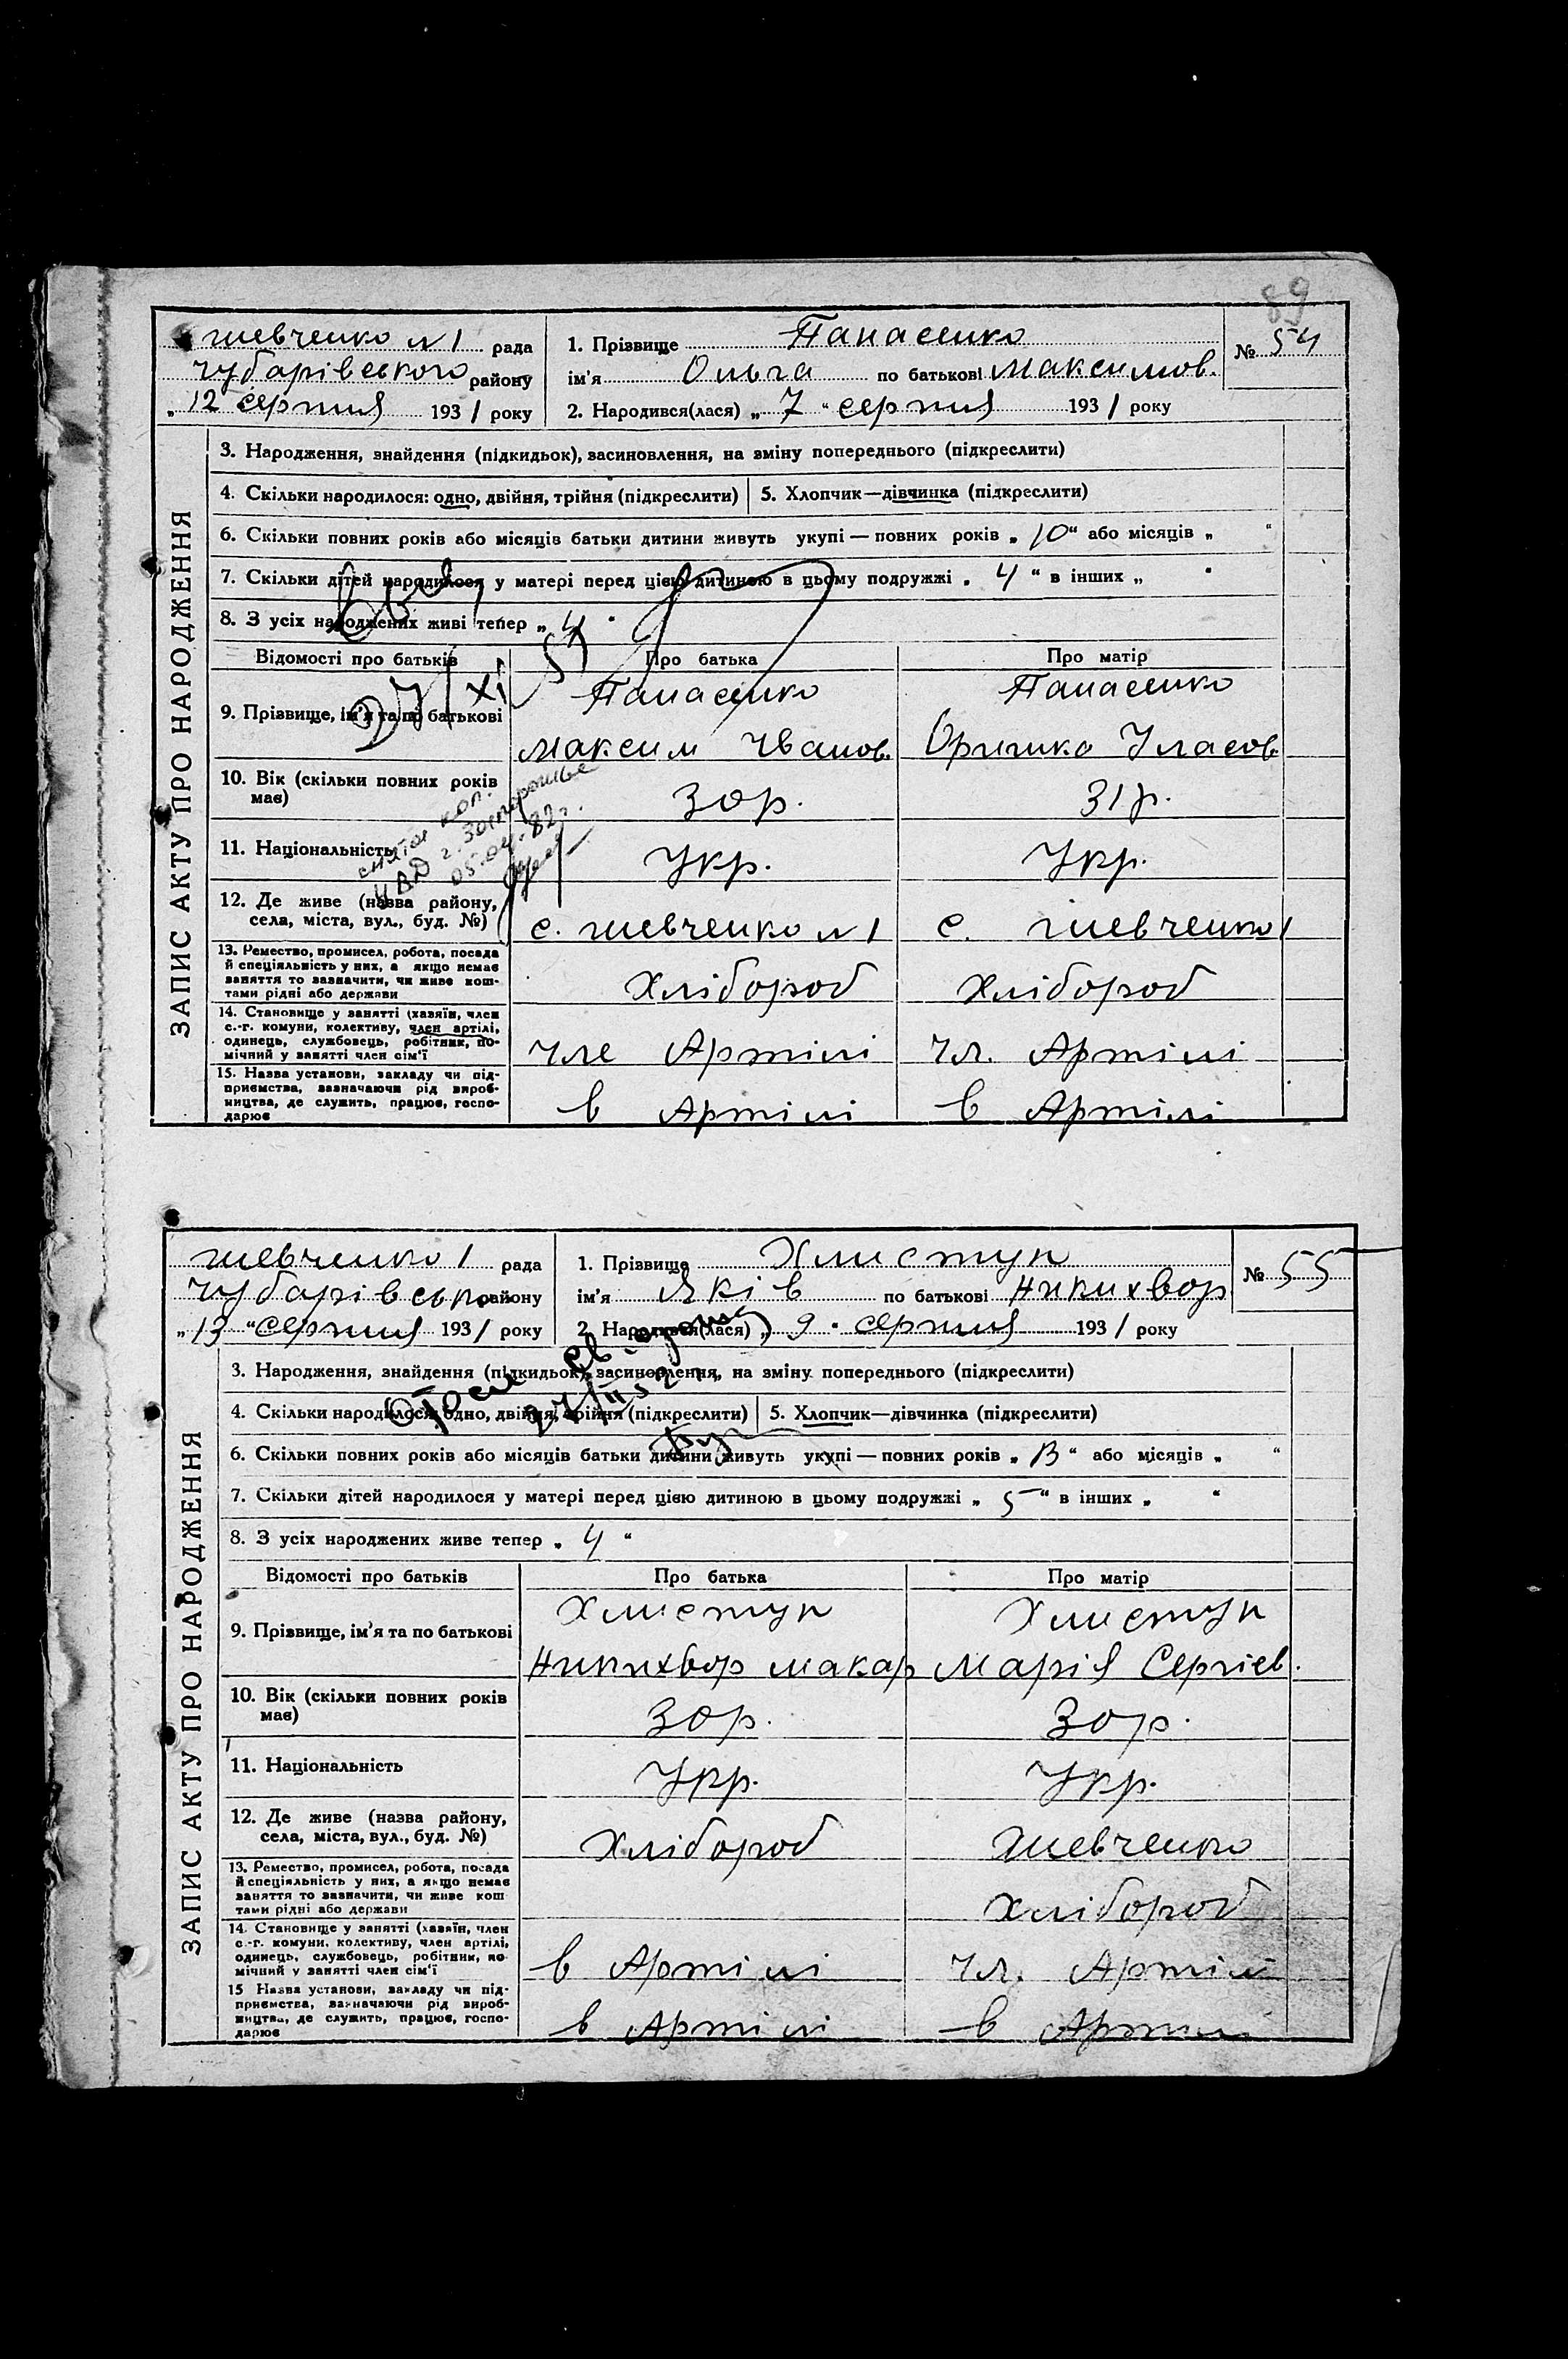 89
Шевченко №1 рада
Чубарівського району
„12 серпня 1931 року
1. Прізвище Панасенко
ім'я Ольга по батькові Максимов.
№ 54
2. Народився(лася) „7“ серпня 1931 року
ЗАПИС АКТУ ПРО НАРОДЖЕННЯ
3. Народження, знайдення (підкидьок), засиновлення, на зміну попереднього (підкреслити)
4. Скільки народилося: одно, двійня, трійня (підкреслити) 5. Хлопчик—дівчинка (підкреслити)
6. Скільки повних років або місяців батьки дитини живуть укупі — повних років „10“ або місяців „ “
7. Скільки дітей народилося у матері перед цією дитиною в цьому подружжі „4“ в інших „ “
8. З усіх народжених живі тепер „4“
Відомості про батьків Про батька Про матір
27/XI
9. Прізвище, ім'я та по батькові
Панасенко Панасенко
Максим Іванов. Оришка Уласов.
10. Вік (скільки повних років
має)
30р. 31р.
05.04.82г.
11. Національність Укр. Укр.
12. Де живе (назва району,
села, міста, вул., буд. №)
с. Шевченко №1 с. Шевченко 1
13. Ремество, промисел, робота, посада
й спеціяльність у них, а якщо немає
заняття то зазначити, чи живе кош-
тами рідні або держави
Хлібороб Хлібороб
14. Становище у занятті (хазяїн, член
с.-г. комуни, колективу, член артілі,
одинець, службовець, робітник, по-
мічний у занятті член сім'ї
Чле Артілі Чл. Артілі
15. Назва установи, закладу чи під-
приємства, зазначаючи рід вироб-
ництва, де служить, працює, госпо-
дарює
в Артілі в Артілі
Шевченко 1 рада
Чубарівсько району
„13“ серпня 1931 року
1. Прізвище Хлистун
ім'я Яків по батькові Никихвор
№ 55
2. Народився(лася) „9“ серпня 1931 року
ЗАПИС АКТУ ПРО НАРОДЖЕННЯ
3. Народження, знайдення (підкидьок), засиновлення, на зміну попереднього (підкреслити)
4. Скільки народилося: одно, двійня, трійня (підкреслити) 5. Хлопчик—дівчинка (підкреслити)
6. Скільки повних років або місяців батьки дитини живуть укупі — повних років „13“ або місяців „ “
7. Скільки дітей народилося у матері перед цією дитиною в цьому подружжі „5“ в інших „ “
8. З усіх народжених живе тепер „4“
Відомості про батьків Про батька Про матір
9. Прізвище, ім'я та по батькові
Хлистун Хлистун
Никихвор Макар Марія Сергієв.
10. Вік (скільки повних років
має)
30р. 30р.
11. Національність Укр. Укр.
12. Де живе (назва району,
села, міста, вул., буд. №)
Хлібороб Шевченко
13. Ремество, промисел, робота, посада
й спеціяльність у них, а якщо немає
заняття то зазначити, чи живе кош
тами рідні або держави
Хлібороб
14. Становище у занятті (хазяїн, член
с.-г. комуни, колективу, член артілі,
одинець, службовець, робітник, по
мічний у занятті член сім'ї
в Артілі Чл. Артілі
15 Назва установи, закладу чи під-
приємства, зазначаючи рід вироб-
ництва, де служить, працює, госпо-
дарює
в Артілі в Артілі